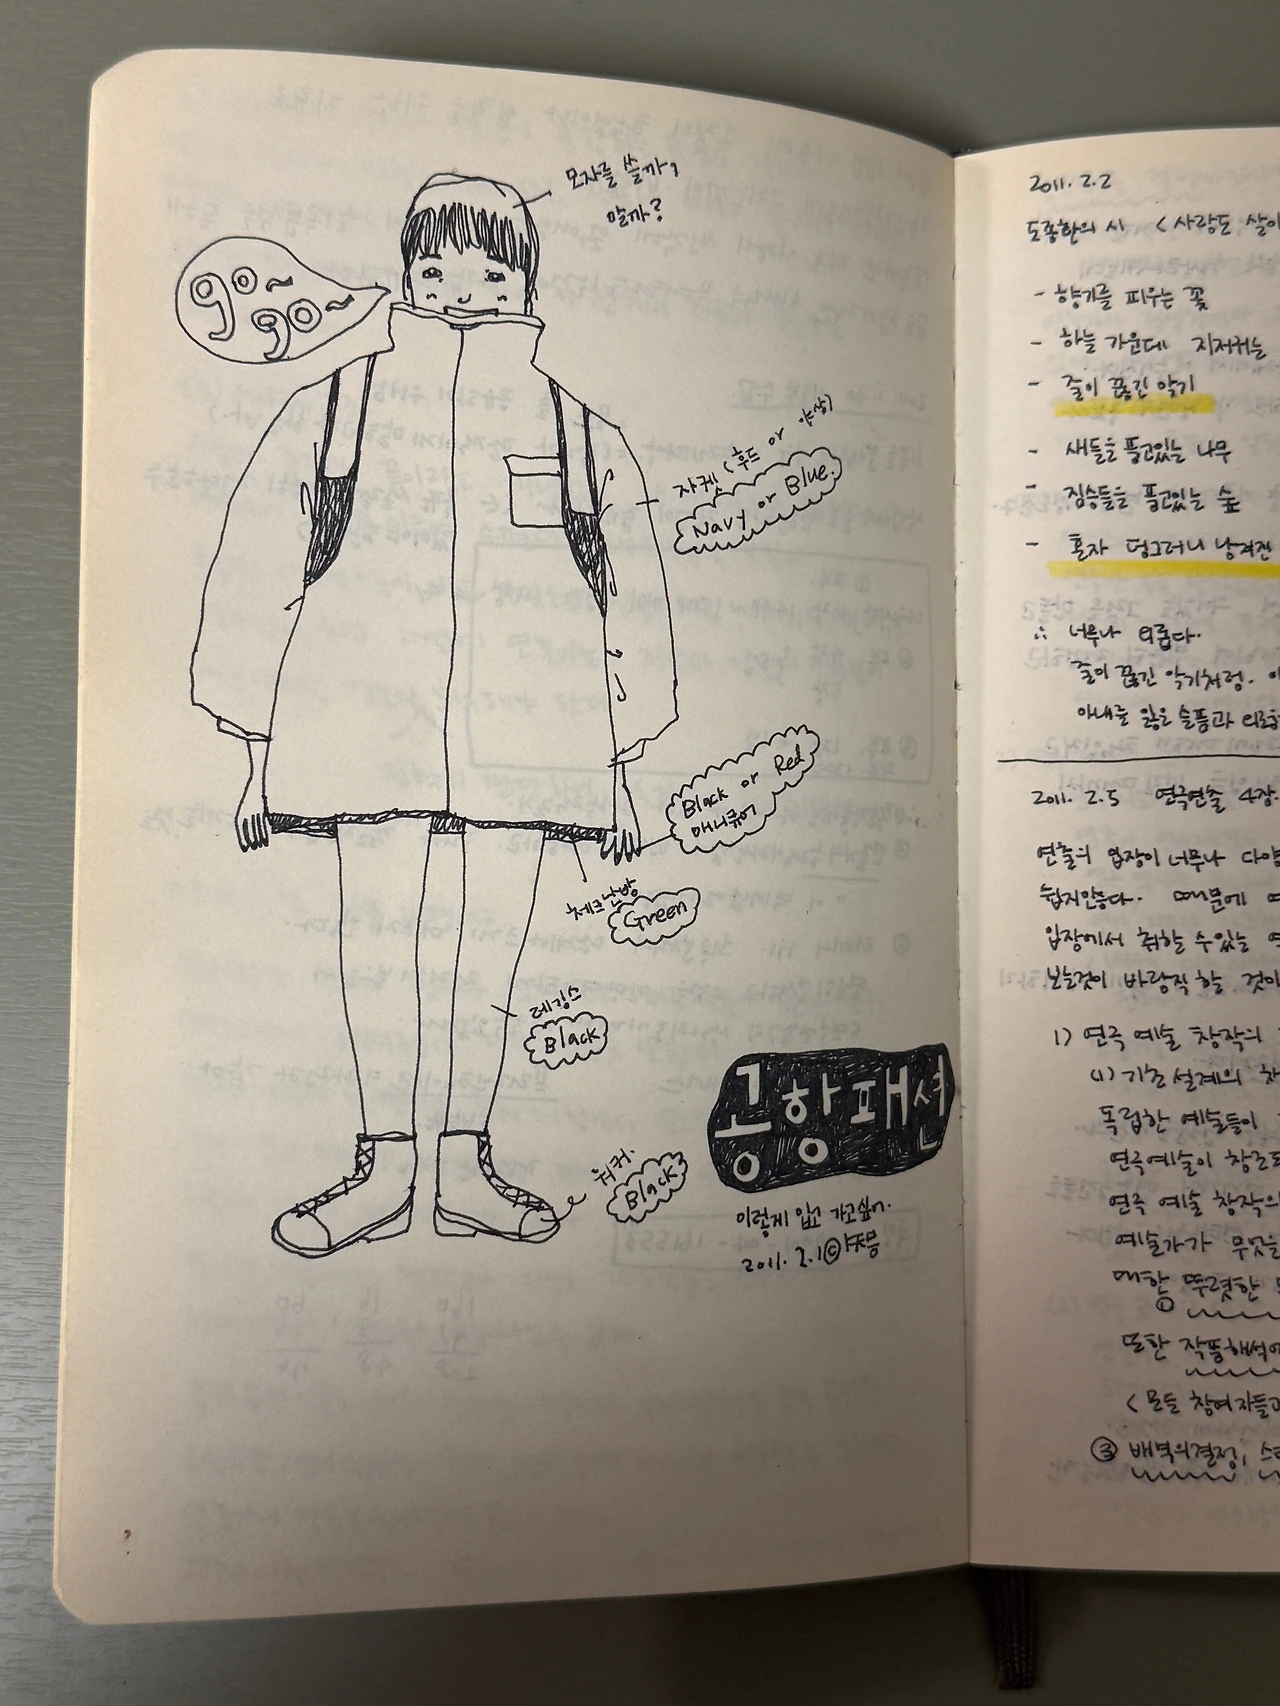 모자를 쓸까,
말까?
go~
go~
자켓 (후드 or 야상)
Navy or Blue.
Black or Red
매니큐어
체크난방
Green
레깅스
Black
워커.
Black
공항패션
이렇게 입고 가고싶어.
2011. 2. 1 ©
2011. 2. 2
도종환의 시 < 사랑도 살아
- 향기를 피우는 꽃
- 하늘 가운데 지저귀는
- 줄이 끊긴 악기
- 새들을 품고있는 나무
- 짐승들을 품고있는 숲
- 혼자 덩그러니 남겨진
∴ 너무나 외롭다.
줄이 끊긴 악기처럼.
아내를 잃은 슬픔과
2011. 2. 5 연극연출 4장.
연출의 입장이 너무나 다양
쉽지않다. 때문에
입장에서 취할 수 있는
보는것이 바람직 할 것이
1) 연극 예술 창작의
(1) 기초 설계의 창
독립한 예술들이
연극예술이 창조되
연극 예술 창작의
예술가가 무엇을
대한 뚜렷한
①
또한 작품해석에
< 모든 참여자들과
③ 배역의결정,